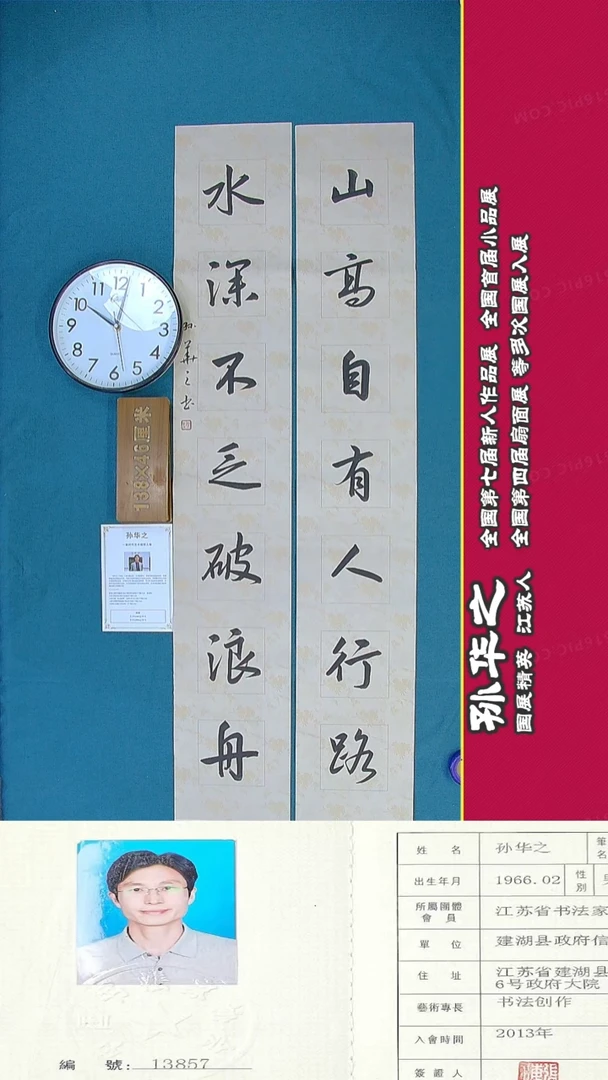 山高自有人行路
水深不乏破浪舟
孙华之书
12
1
2
3
4
5
6
7
8
9
10
138×46厘米
孙华之
孙华之
国展精英 江苏人
全国第七届新人作品展 全国首届小品展
全国第四届扇面展 等多次国展入展
编 號: 13857
姓 名 孙华之 筆名
出生年月 1966.02 性別
所屬團體會員 江苏省书法家
單 位 建湖县政府信
住 址 江苏省建湖县
6号政府大院
藝術專長 书法创作
入會時間 2013年
簽證人